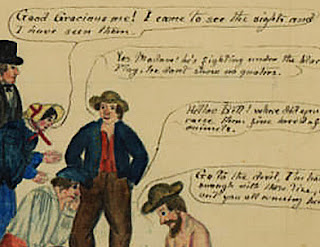 Good Gracious me! I came to see the sights and
I have seen them.
Yes Madam! he's fighting under the Blac
Flag. he dont show no quaters.
Hulloo Bill! where did you
raise them fine
animels.
Go to the devil. I'm ha
enough with these
and you all a